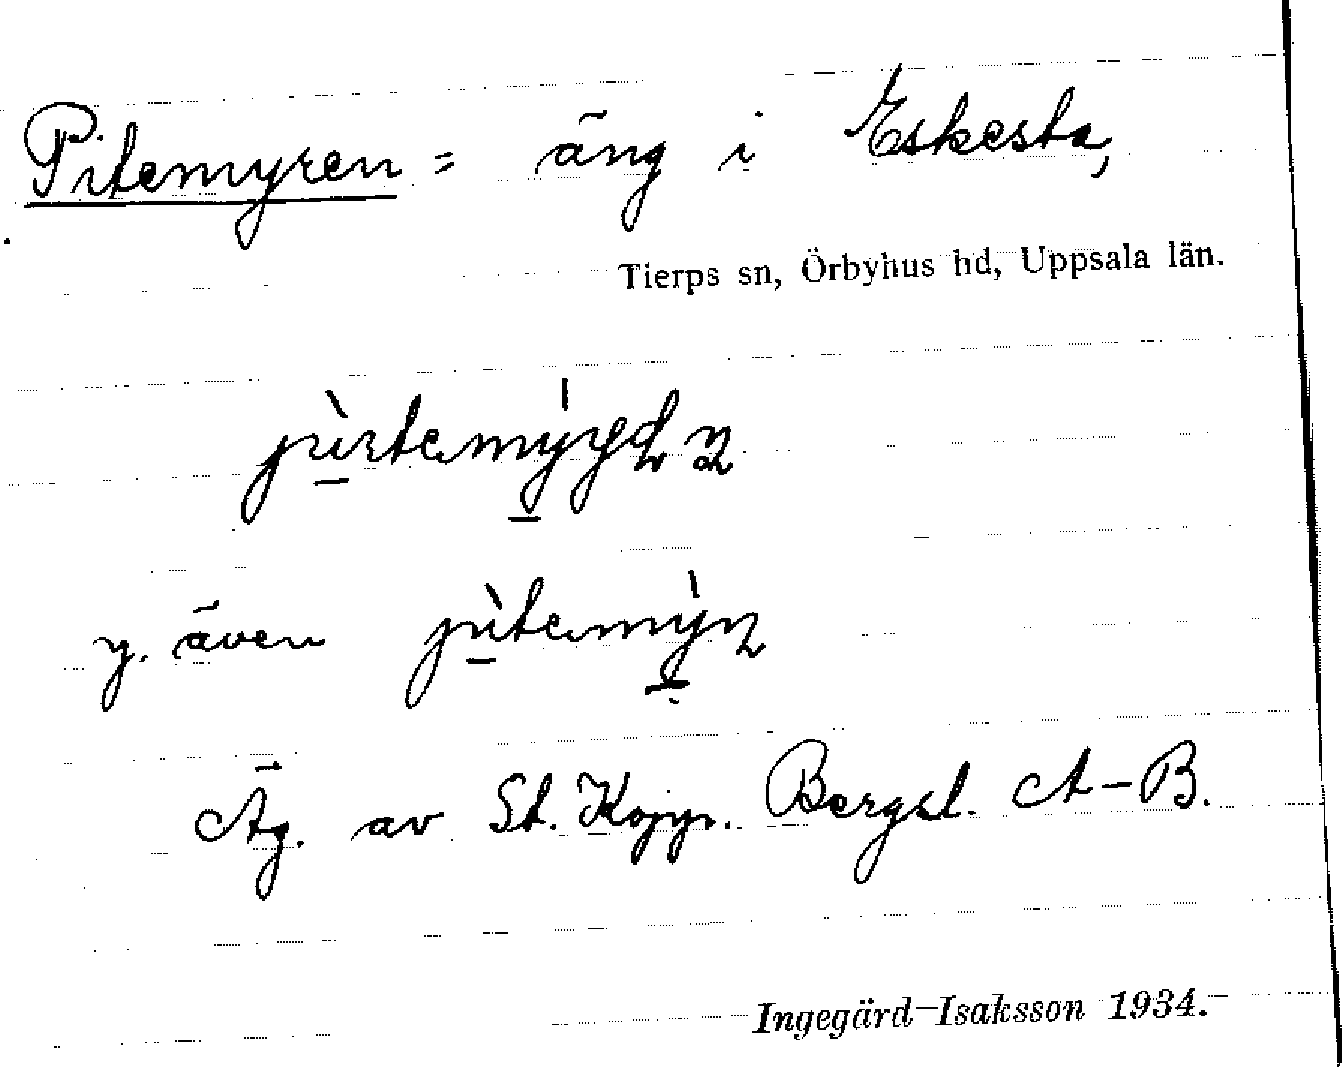 Pitemyren = äng i Eskesta,
Tierps sn, Örbyhus hd, Uppsala län.
y. även
Äg. av St. Kopp. Bergsl. A-B.
Ingegärd Isaksson 1934.